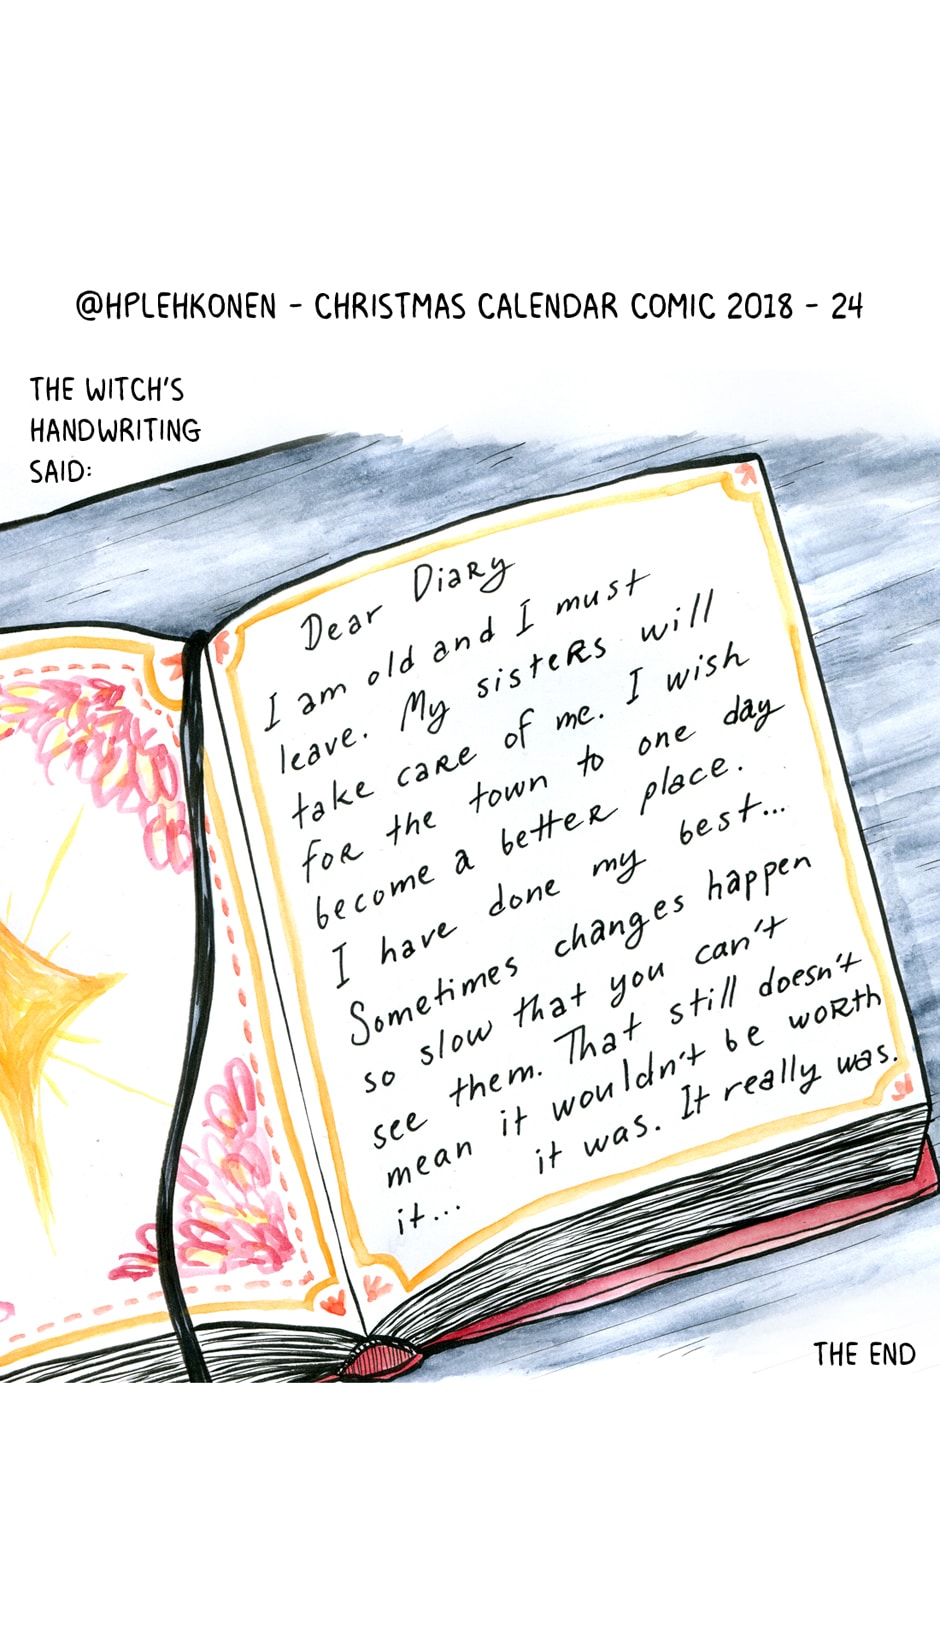 @HPLEHKONEN - CHRISTMAS CALENDAR COMIC 2018 - 24
THE WITCH'S
HANDWRITING
SAID:
Dear Diary
I am old and I must
leave. My sisters will
take care of me. I wish
for the town to one day
become a better place.
I have done my best...
Sometimes changes happen
so slow that you can't
see them. That still doesn't
mean it wouldn't be worth
it... it was. It really was.
THE END